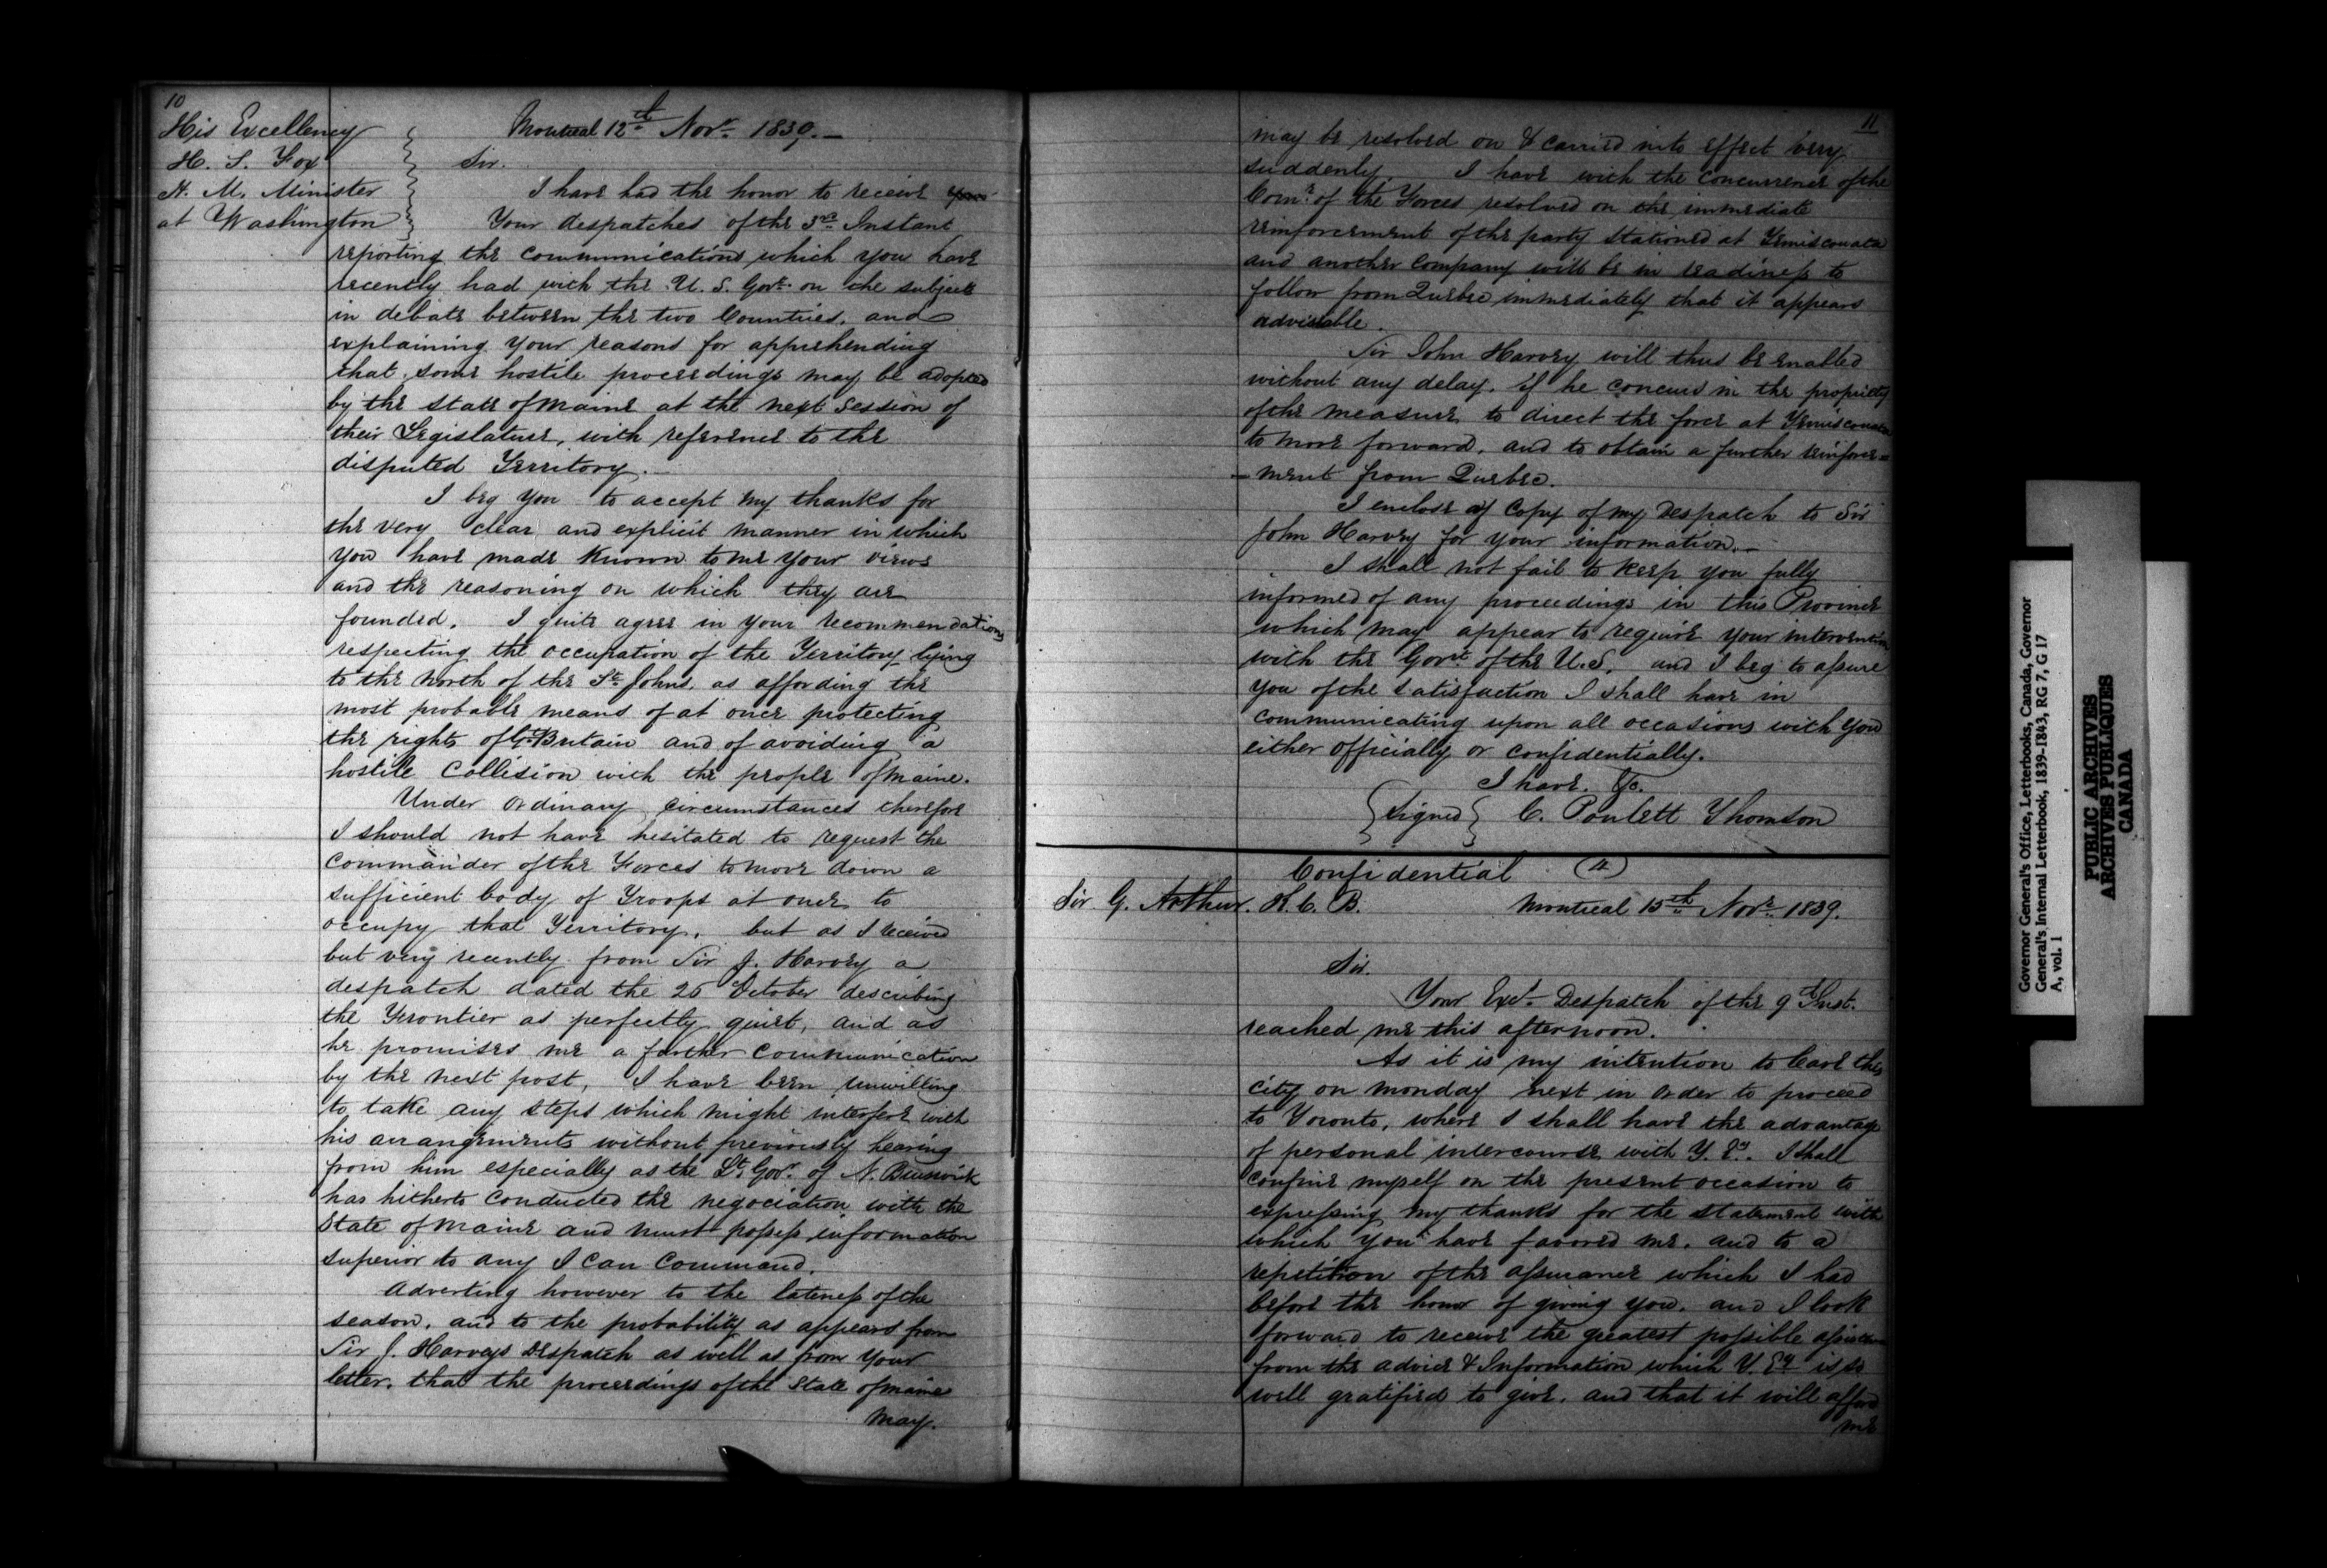 10
His Excellency
H. S. Fox
H. M. Minister
at Washington
Montreal 12th Novr. 1839.—
Sir.
I have had the honor to receive your
Your despatches of the 3rd Instant
reporting the communications which you have
recently had with the U. S. Govt. on the subject
in debate between the two Countries. and
explaining your reasons for apprehending
that some hostile proceedings may be adopted
by the state of Maine at the next Session of
their Legislature, with reference to the
disputed Territory.—
I beg you to accept my thanks for
the very clear and explicit manner in which
you have made known to me your views
and the reasoning on which they are
founded. I quite agree in your recommendations
respecting the occupation of the Territory lying
to the north of the St. Johns. as affording the
most probable means of at once protecting
the rights of Gt. Britain and of avoiding a
hostile Collision with the people of Maine.
Under ordinary circumstances therefore
I should not have hesitated to request the
Commander of the Forces to move down a
sufficient body of Troops at once to
occupy that Territory. but as I received
but very recently from Sir J. Harvey a
despatch dated the 25 October describing
the Frontier as perfectly quiet, and as
he promises me a further communication
by the next post, I have been unwilling
to take any steps which might interfere with
his arrangements without previously hearing
from him especially as the Lt. Govr. of N. Brunswick
has hitherto conducted the negociation with the
State of Maine and must possess information
superior to any I can command.
Adverting however to the lateness of the
season. and to the probability as appears from
Sir J. Harveys Despatch as well as from your
letter. that the proceedings of the State of Maine
may.
11
may be resolved on & carried into effect very
suddenly. I have with the concurrence of the
Comr. of the Forces resolved on the immediate
reinforcement of the party stationed at Temiscouata
and another Company will be in readiness to
follow from Quebec immediately that it appears
advisable.
Sir John Harvey will thus be enabled
without any delay. if he concurs in the propriety
of the measure to direct the force at Temiscouata
to move forward. and to obtain a further reinforce=
-ment from Quebec.
I enclose a Copy of my Despatch to Sir
John Harvey for your information.—
I shall not fail to keep you fully
informed of any proceedings in this Province
which may appear to require your intervention
with the Govrt. of the U.S. and I beg to assure
you of the satisfaction I shall have in
communicating upon all occasions with you
either officially or confidentially.
I have. &c.
Signed C. Poulett Thomson
Confidential
Sir G. Arthur. K. C. B.
Montreal 15th Novr. 1839.
Sir.
Your Excy. Despatch of the 9th Inst.
reached me this afternoon.
As it is my intention to leave this
city on monday next in order to proceed
to Toronto, where I shall have the advantage
of personal intercourse with Y. Ey. I shall
confine myself on the present occasion to
expressing my thanks for the statement with
which you have favored me. and to a
repetition of the assurance which I had
before the honor of giving you. and I look
forward to receive the greatest possible assistance
from the advice & Information which Y. Ey is so
well gratified to give. and that it will afford
me
Governor General's Office, Letterbooks, Canada, Governor
General's Internal Letterbook, 1839-1843, RG 7, G 17
A, vol. 1
PUBLIC ARCHIVES
ARCHIVES PUBLIQUES
CANADA